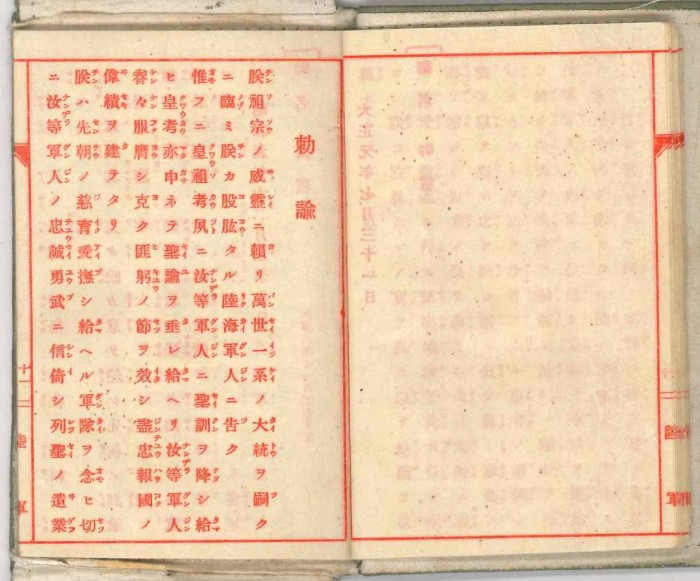 勅諭
朕祖宗ノ威靈ニ頼リ萬世一系ノ大統ヲ嗣ク
ニ臨ミ朕カ股肱タル陸海軍人ニ告ク
惟フニ皇祖考夙ニ汝等軍人ニ聖訓ヲ降シ給
ヒ皇考亦申ネテ聖諭ヲ垂レ給ヘリ汝等軍人
眷々服膺シ克ク匪躬ノ節ヲ效シ盡忠報國ノ
偉績ヲ建テタリ
朕ハ先朝ノ慈育愛撫シ給ヘル軍隊ヲ念ヒ切
ニ汝等軍人ノ忠誠勇武ニ信倚シ列聖ノ遺業
十二
陸軍